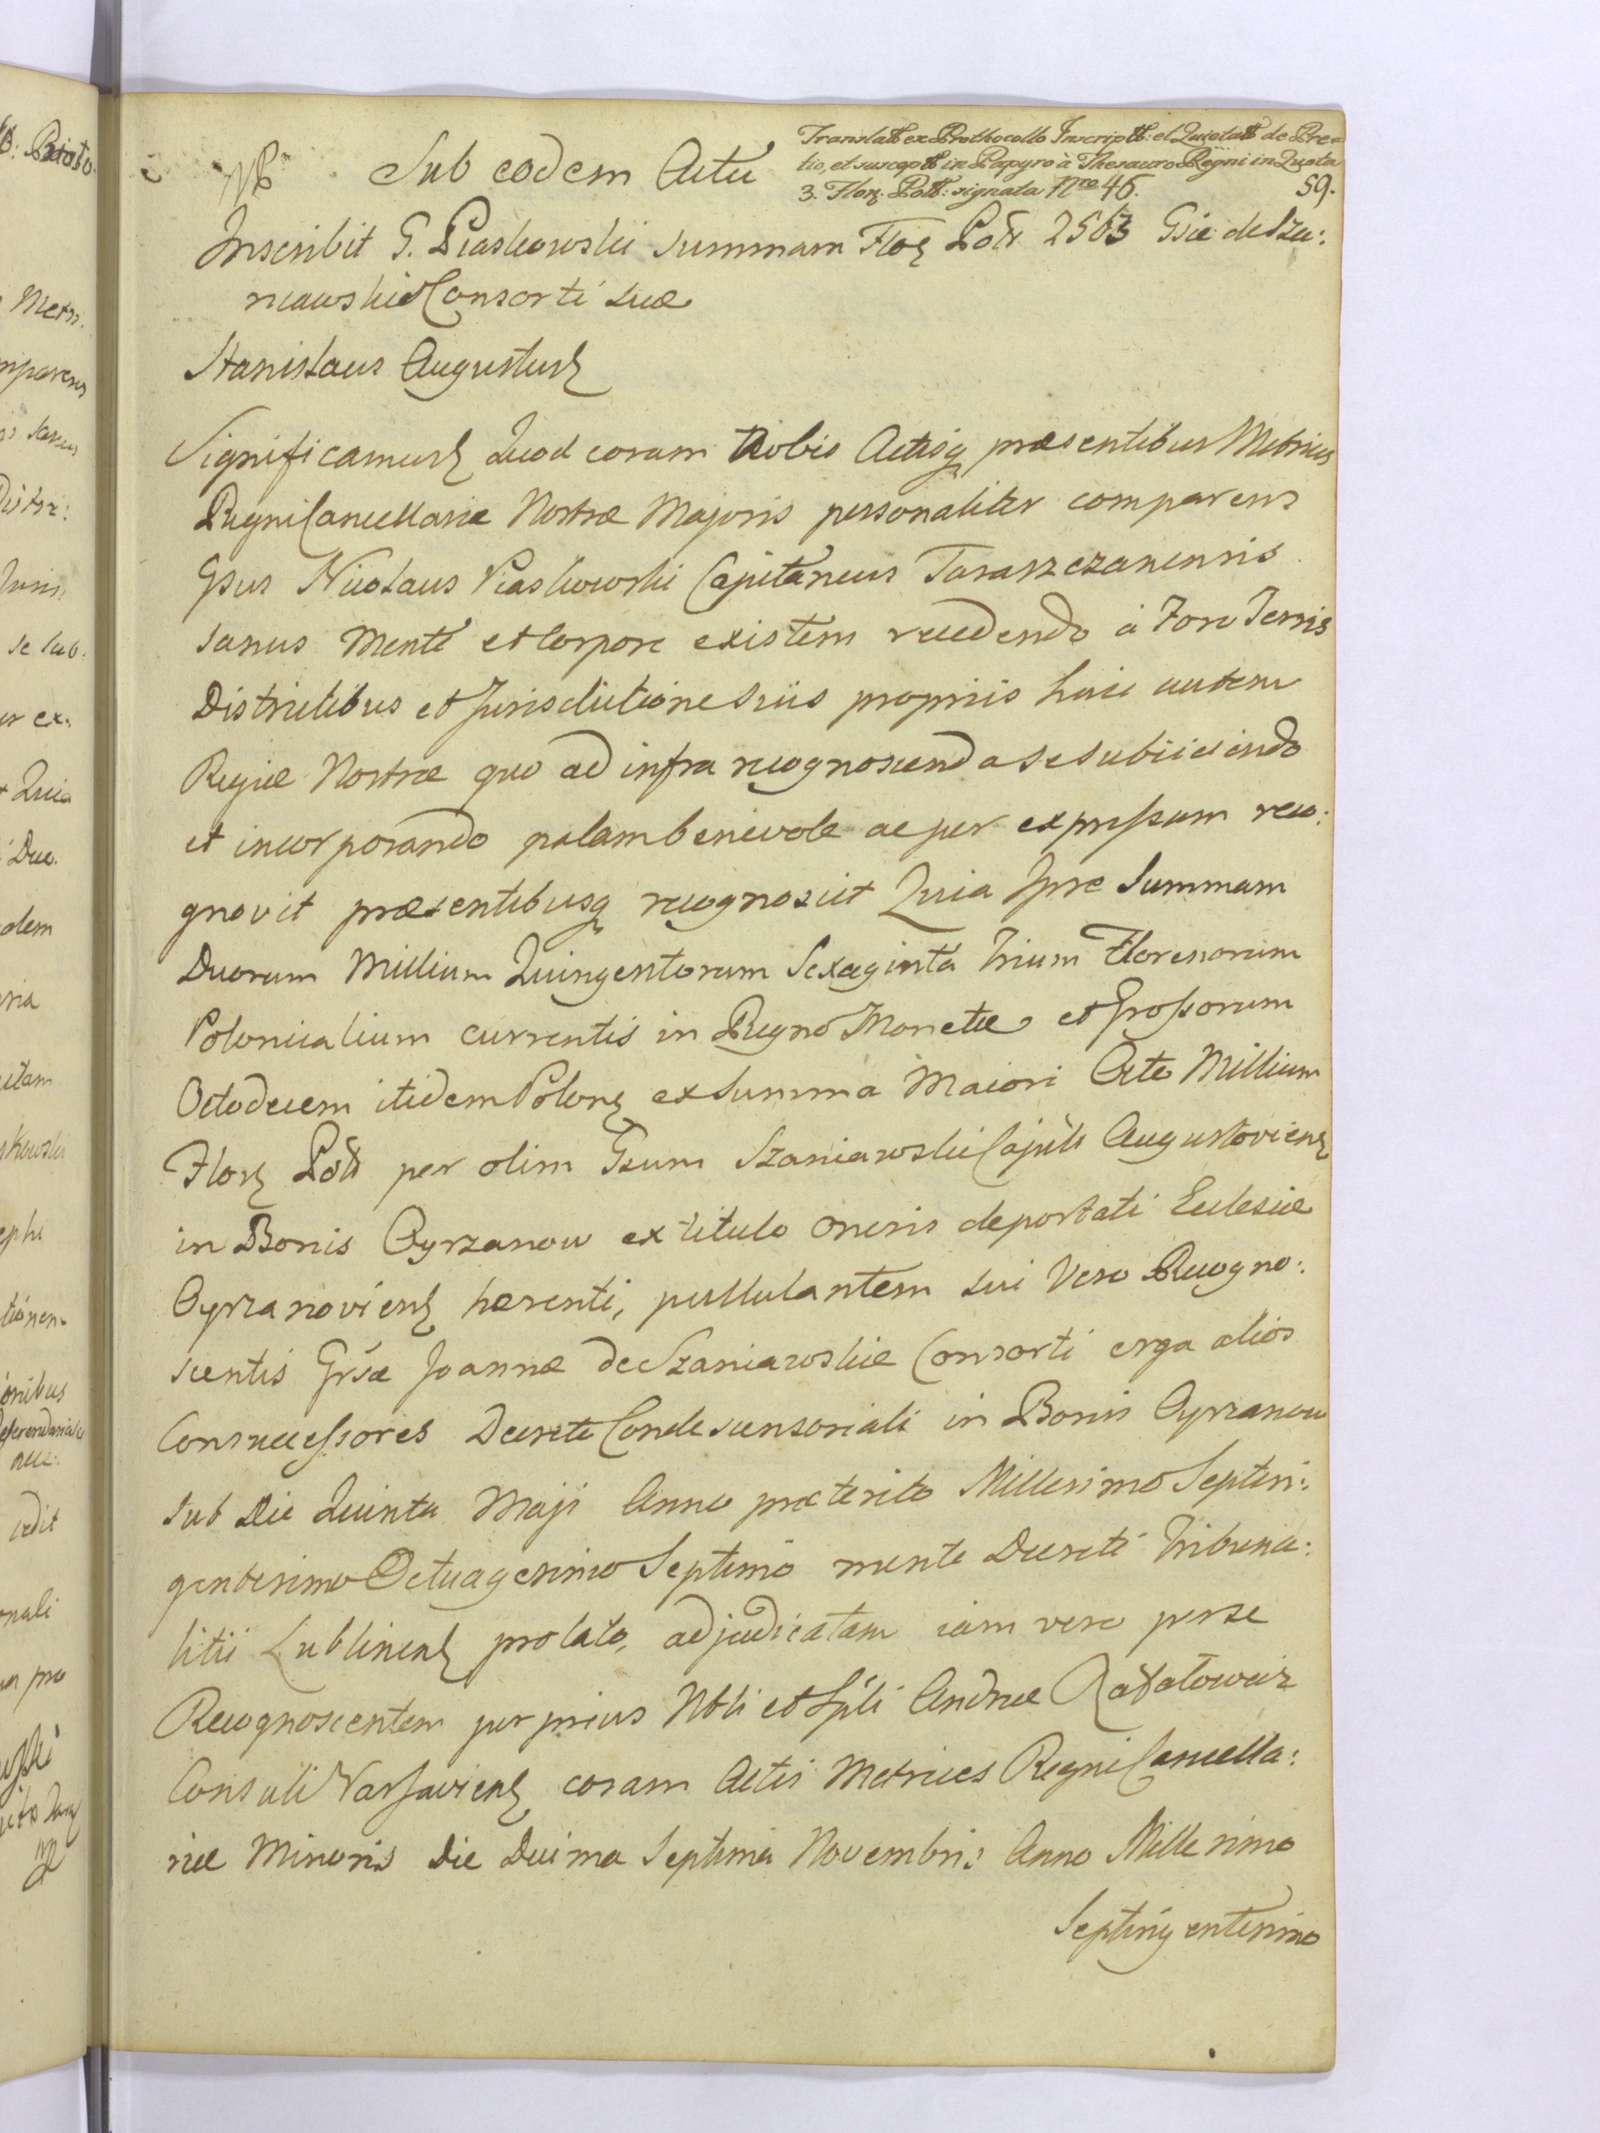 Translatt ex Prothocollo Inscriptt: et Quietatt de Pre=
tio, et susceptt in Papyro à Thesauro Regni in Quota
3. Flor. Poltt: signata Nro 46.
59.
Nb Sub eodem Actu
Inscribit G. Piaskowski summam Flor Poltt 2563 Gsae de Sza:
niawskie Consorti suae
Stanislaus Augustus
Significamus Quod coram Nobis Actisq praesentibus Metrices
Regni Cancellariae Nostrae Majoris personaliter comparens
Gsus Nicolaus Piaskowski Capitaneus Taraszczanensis
sanus Mente et Corpore existens recedendo à Foro Terris
Districtibus et Jurisdictione suis propriis huic autem
Regiae Nostrae quo ad infra recognoscenda se subiiciendo
et incorporando palam benevole ac per expressum reco:
gnovit praesentibusq recognoscit Quia Ipse Summam
Duorum Millium Quingentorum Sexaginta Trium Florenorum
Polonicalium currentis in Regno Monetae et Grossorum
Octodecem itidem Polon ex Summa Maiori Octo Millium
Flor Poltt per olim Gsum Szaniawski Capit Augustoviens
in Bonis Gyrzanow ex titulo Oneris deportati Eclesiae
Gyrzanoviens haerenti, pullulantem sui Vero Recogno:
scentis Grsae Joannae de Szaniawskie Consorti erga alios
Consuccessores Decreto Condescensoriali in Bonis Gyrzanow
sub Die Quinta Maji Anno praeterito Millesimo Septin:
gentesimo Octuagesimo Septimo mente Decreti Tribuna:
litii Lublinens prolato, adjudicatam iam vero per se
Recognoscentem per prius Nbli et Spli Andreae Rafalowicz
Consuli Varsaviens coram Actis Metrices Regni Cancella:
riae Minoris Die Decima Septima Novembris Anno Millesimo
Septingentesimo